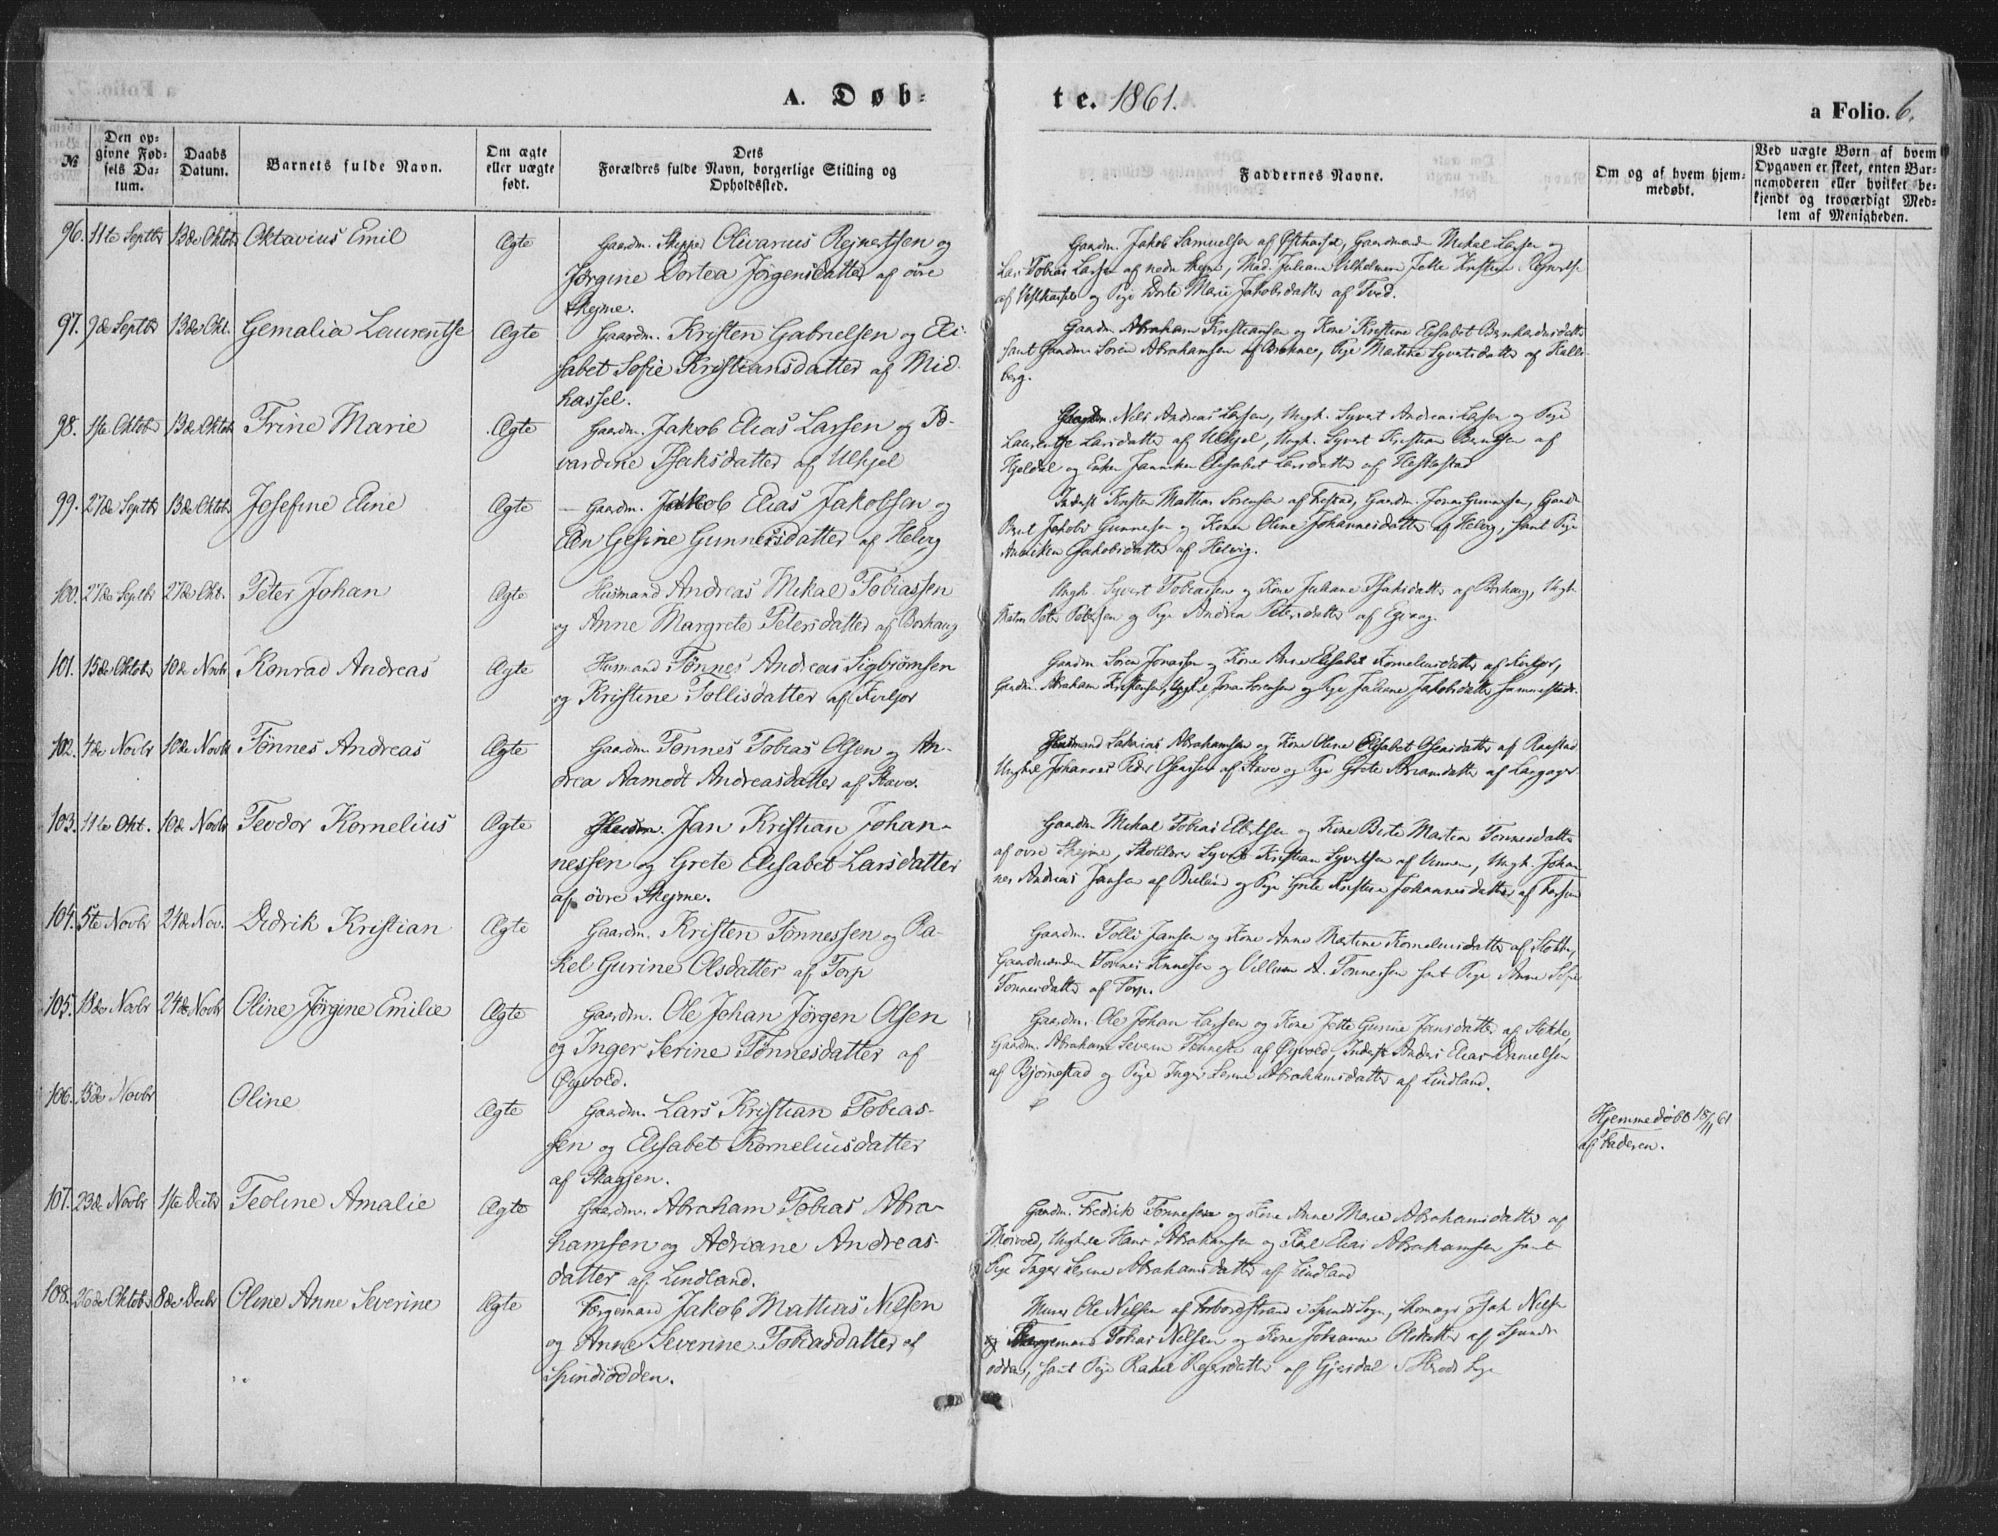 A. Døb-
te. 1861.
a Folio. 6.
№
Den op-
givne Fød-
sels Da-
tum.
Daabs
Datum.
Barnets fulde Navn.
Om ægte
eller uægte
født.
Dets
Forældres fulde Navn, borgerlige Stilling og
Opholdssted.
Faddernes Navne.
Om og af hvem hjem-
medøbt.
Ved uægte Børn af hvem
Opgaven er skeet, enten Bar-
nemoderen eller hvilket be-
kjendt og troværdigt Med-
lem af Menigheden.
96. 11te Septbr 13de Oktob Oktavius Emil Ægte Gaardm. Olivarius Rejnertsen og
Jørgine Dortea Jørgensdatter af øvre
Skejme.
Gaardm. Jakob Samuelsen af Østhassel, Gaardmand Mikal Larsen og
Tobias Larsen af nedre Skejme, Mad. Juliane Vilhelmine
af Vesthassel og Pige Dorte Marie Jakobsdatter af
97. 9de Septbr 13de Okt. Gemalia Laurentse Ægte Gaardm. Kristen Gabrielsen og Eli-
sabet Sofie Kristiansdatter af Mid-
hassel.
Gaardm. Abraham Kristiansen og Kone Kristine Elisabet
samt Gaardm. Søren Abrahamsen af Brekne, Pige Martine Syvertsdatter af Kalle-
berg.
98. 1ste Oktob 13de Oktob Trine Marie Ægte Gaardm. Jakob Elias Larsen og To-
vardine Isaksdatter af Ulhjel
Gaardm. Nils Andreas Larsen, Ungk. Syvert Andreas Larsen og Pige
Laurentse Larsdatter af Ulhjel, Ungk. Syvert Kristian Berntsen af
Hjeldal og Enken Janniken Elisabet Larsdatter af Hestestad
99. 27de Septbr 13de Oktob Josefine Eline Ægte Gaardm. Jakob Elias Jakobsen og
Elen Gesine Gunnersdatter af Helvig
Inderst Kristen Mathias Sørensen af Gaardm. Jonas Gunnersen, Gaardm
Bent Jakob Gunnersen og Konen Oline Johannesdatter af Helvig, samt Pige
Anneken Jakobsdatter af Helvig.
100. 27de Septbr 27de Okt. Peter Johan Ægte Husmand Andreas Mikal Tobiassen
og Anne Margrete Petersdatter af Borhaug
Ungk. Syvert Tobiassen og Kone Juliane Isaksdatter af Borhaug, Ungk.
Peter Petersen og Pige Andrea Petersdatter af Egvaag.
101. 15de Oktob 10de Novbr Konrad Andreas Ægte Husmand Tønnes Andreas Sigbrømsen
og Kristine Tollisdatter af Kviljor
Gaardm. Søren Jonassen og Kone Anne Elisabet Korneliusdatter af Kviljor,
Gaardm. Abraham Kristensen, Ungk. Jonas Sørensen og Pige Juliane Jakobsdatter sammesteds.
102. 4de Novbr 10de Novbr Tønnes Andreas Ægte Gaardm. Tønnes Tobias Olsen og An-
drea Aamodt Andreasdatter af Stave.
Husmand Sakarias Abrahamsen og Kone Oline Elisabet Osensdatter af Raastad
Ungkl. Johannes Peder af Stave og Pige Grete af
103. 11te Okt. 10de Novbr Teodor Kornelius Ægte Gaardm. Jan Kristian Johan-
nessen og Grete Elisabet Larsdatter
af øvre Skejme.
Gaardm. Mikal Tobias Elertsen og Kone Berte Martea Tønnesdatter
af øvre Skejme, Skolelærer Syvert Kristian Syvertsen af Unnem, Ungk. Johan-
nes Andreas Jansen af Brelund og Pige Grete Kristine Johannesdatter af
104. 5te Novbr 24de Nov. Didrik Kristian Ægte Gaardm. Kristen Tønnessen og Ra-
kel Gurine Olsdatter af Torp
Gaardm. Tolli Jansen og Kone Anne Martine Korneliusdatter af
Gaardmændene Tønnes og Villum A. Tønnessen samt Pige Anne Sofie
Tønnesdatter af Torp.
105. 18de Novbr 24de Novbr Oline Jørgine Emilie Ægte Gaardm. Ole Johan Jørgen Olsen
og Inger Serine Tønnesdatter af
Øyvold.
Gaardm. Ole Johan Larsen og Kone Jette Gurine Jansdatter af
Gaardm. Abraham Severin Tønnesen af Øyvold, Inderst Anders Elias Danielsen
af Bjørnestad og Pige Inger Serine Abrahamsdatter af Lindland.
106. 15de Novbr Oline Ægte Gaardm. Lars Kristian Tobias-
sen og Elisabet Korneliusdatter
af Skagjen.
Hjemmedøbt 15/11 61
af Faderen.
107. 23de Novbr 1ste Decbr Teoline Amalie Ægte Gaardm. Abraham Tobias Abra-
hamsen og Adriane Andreas-
datter af Lindland.
Gaardm. Fredrik Tønnesen og Kone Anne Marie Abrahamsdatter af
Ungkle Hans Abrahamsen og Karl Elias Abrahamsen samt
Pige Inger Serine Abrahamsdatter af Lindland
108. 26de Oktob 8de Decbr Oline Anne Severine Ægte Færgemand Jakob Mattias Nilsen
og Anne Severine Tobiasdatter af
Spindsodden.
Ole Nilsen af i Spinds Sogn, Isak Nilsen
og Færgemand Tobias Nilsen og Kone Johanne Olsdatter af Spinds-
odden, samt Pige Rakel Rejersdatter af Gjersdal i Herads Sogn